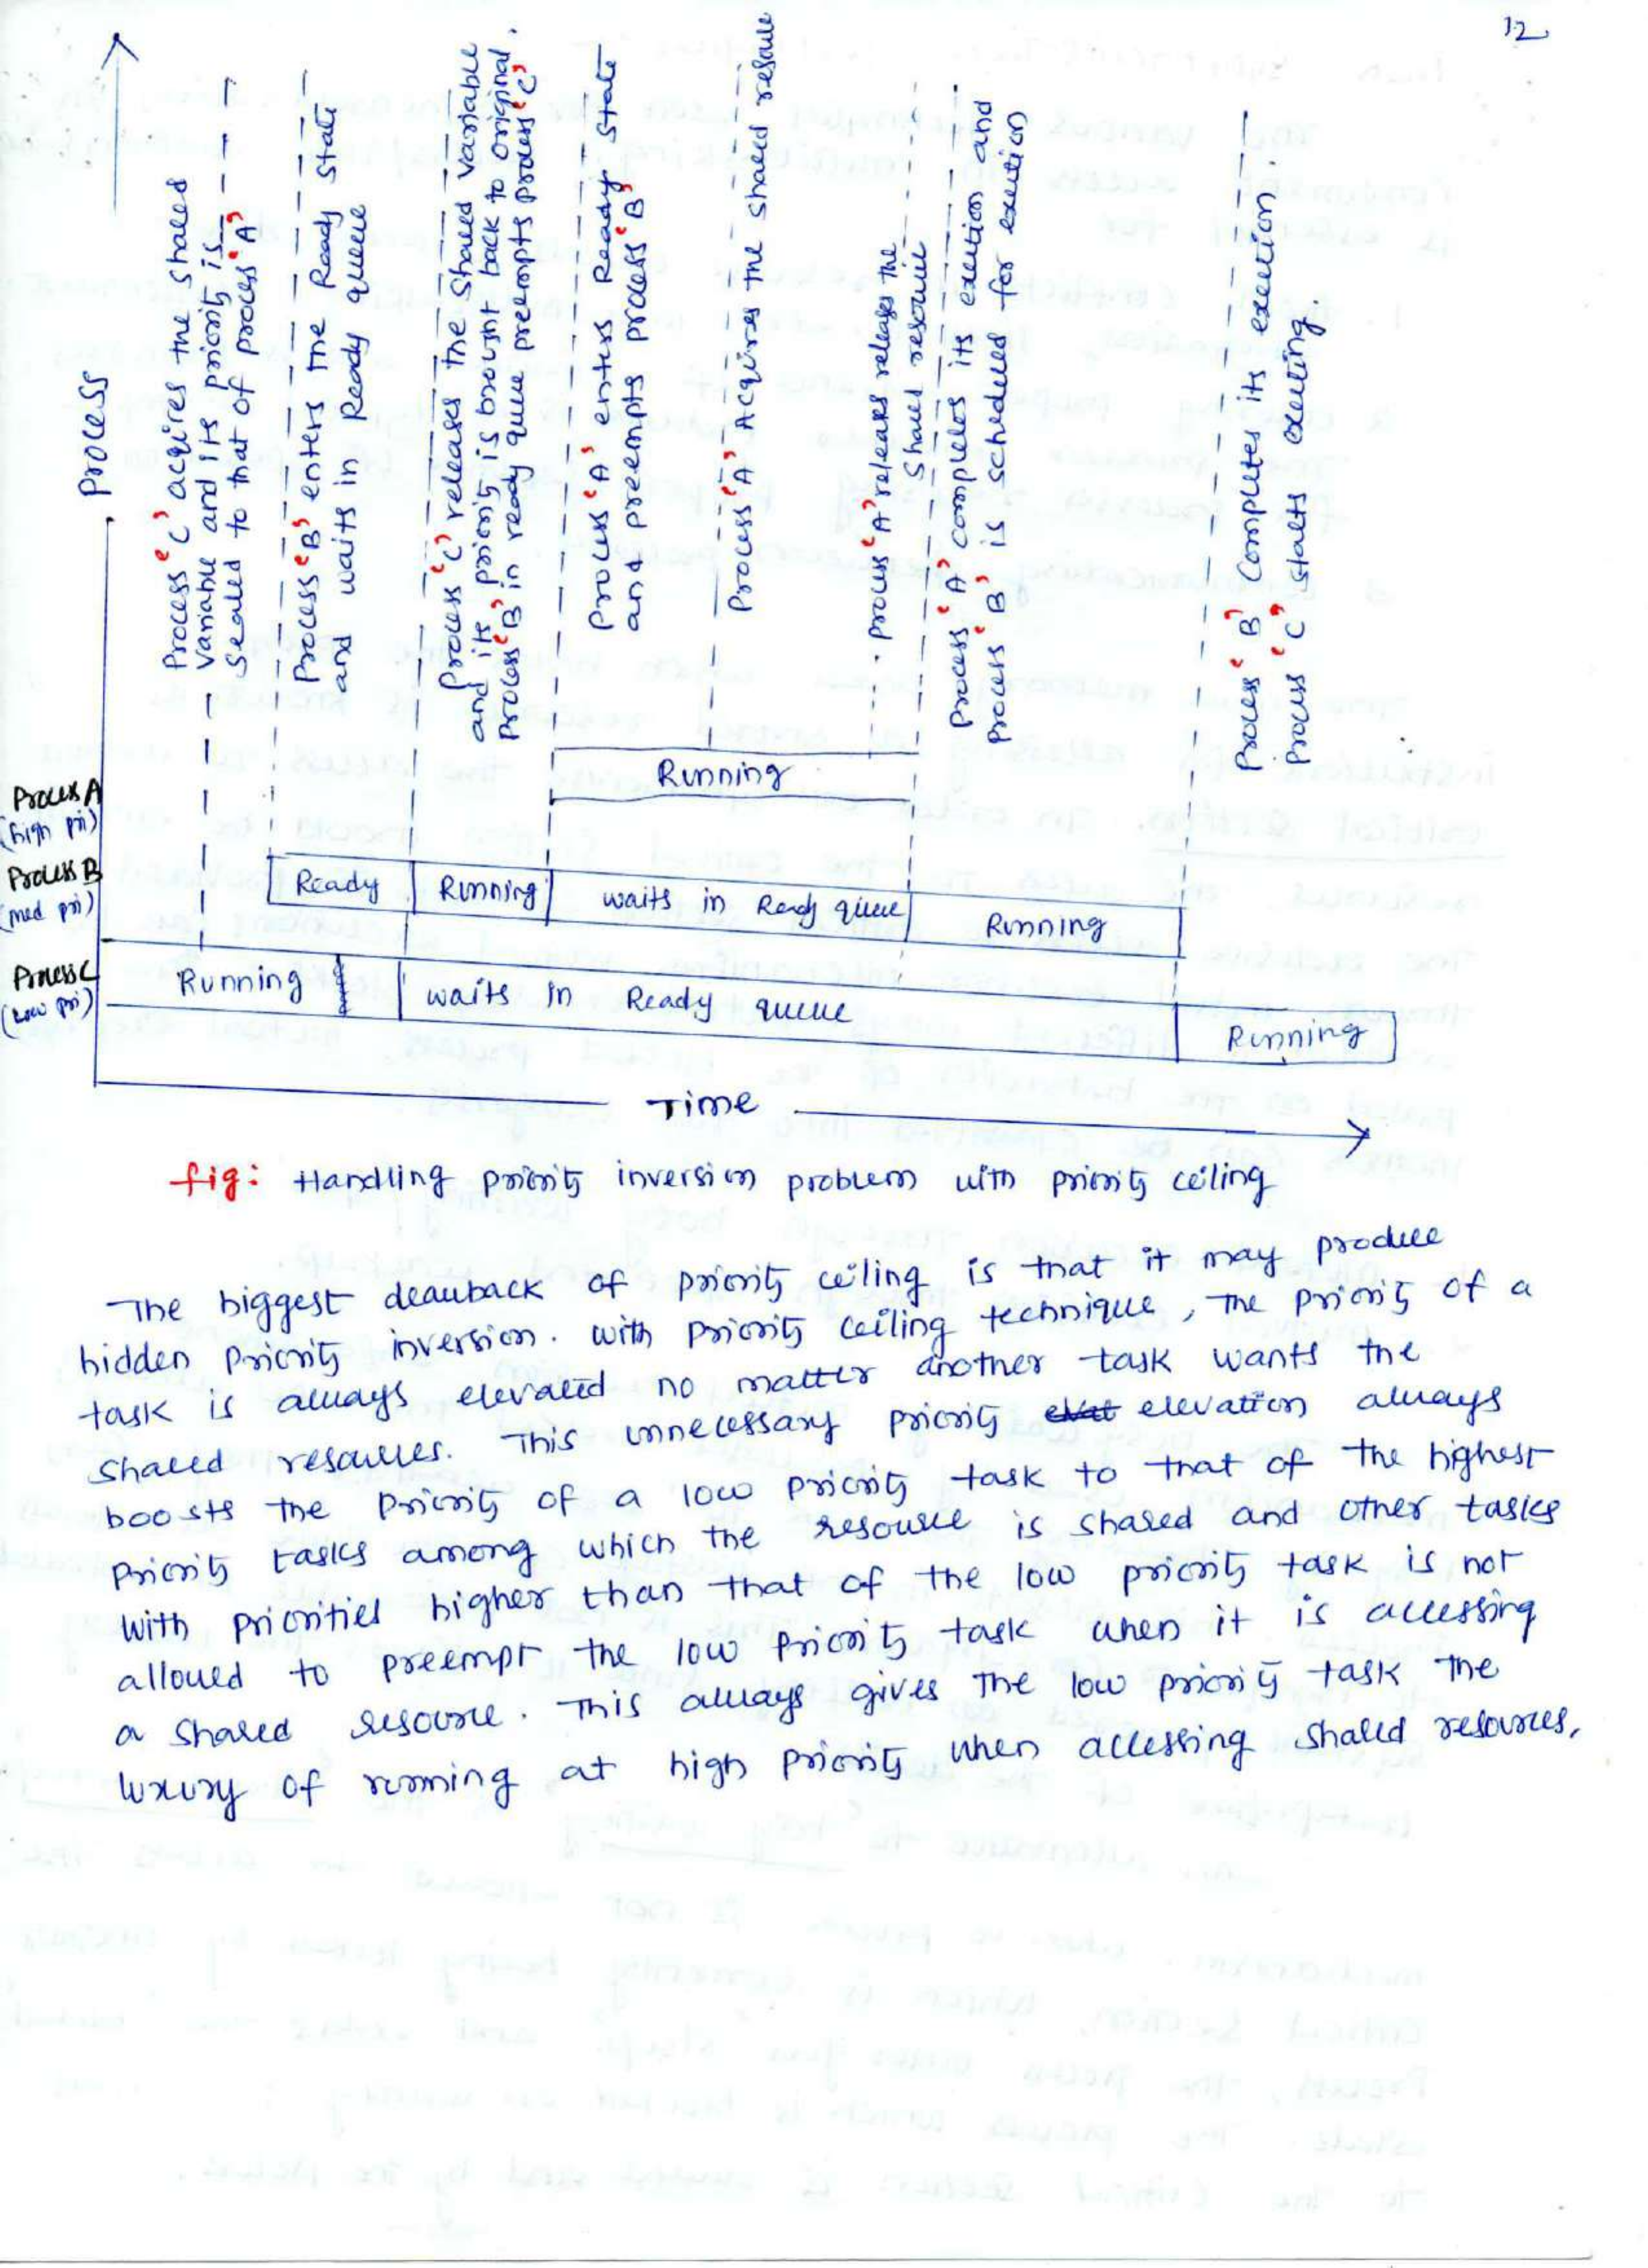 12
Process
Process 'C' acqires the shared
variable and its priority is
Scaled to that of process 'A'
Process 'B' enters the Ready state
and waits in Ready queue
Process 'C' releases the shared variable
and its priority is brought back to original.
Process 'B' in ready quue preempts process 'C'
Process 'A' enters Ready state
and preempts process 'B'
Process 'A' Acquires the shared resource
Process 'A' releases the
shared resource
Process 'A' completes its execution and
Process 'B' is scheduled for execution
Process 'B' Completes its execution.
Process 'C' starts executing.
Process A
(high pri)
Running
Process B
(med pri)
Ready
Running
waits in Ready queue
Running
Process C
(Low pri)
Running
waits in Ready queue
Running
Time
fig: Handling priority inversion problem with priority ceiling
The biggest drawback of priority ceiling is that it may produce
hidden priority inversion. with priority ceiling technique, the priority of a
task is always elevated no matter another task wants the
shared resources. This unnecessary priority elevation always
boosts the priority of a low priority task to that of the highest
priority tasks among which the resource is shared and other tasks
with priorities higher than that of the low priority task is not
allowed to preempt the low priority task when it is accessing
a shared resource. This always gives the low priority task the
luxury of running at high priority when accessing shared resources,